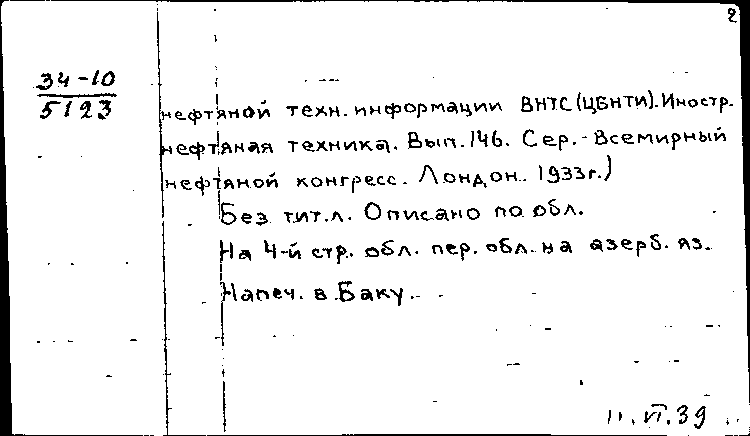 2
34-10
5123
нефтяной техн. информации ВНТС (ЦБНТИ). Иностр.
нефтяная техника. Вып. 146. Сер. - Всемирный
нефтяной конгресс. Лондон. 1933г.)
Без тит. л. Описано по обл.
На 4-й стр. обл. пер. обл. на азерб. яз.
Напеч. в Баку.
11.VI.39